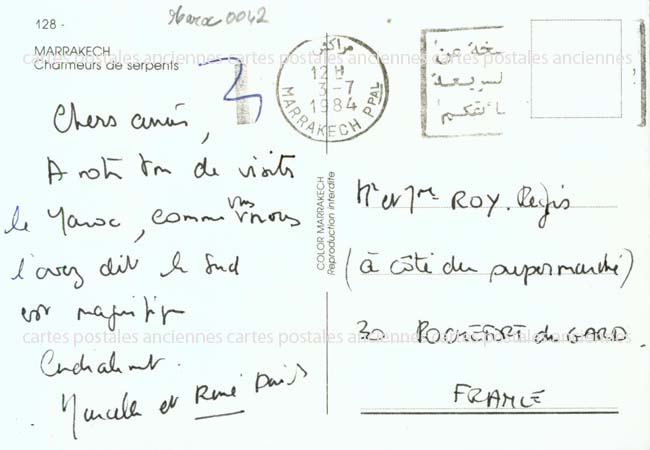 Maroc 0042
128 -
MARRAKECH
Charmeurs de serpents
cartes postales anciennes cartes postales anciennes cartes postales anciennes
مراكش
12H
3-7
1984
MARRAKECH PPAL
خة عن
لسريعة
Chers amis,
A notre tour de visiter
le Maroc, comme vous nous
l'avez dit le Sud
est magnifique
Cordialement.
Marcelle et René
COLOR MARRAKECH
Reproduction interdite
Mr et Mme ROY. Régis
(à côté du supermarché)
30 ROCHEFORT du GARD.
FRANCE
cartes postales anciennes cartes postales anciennes cartes postales anciennes